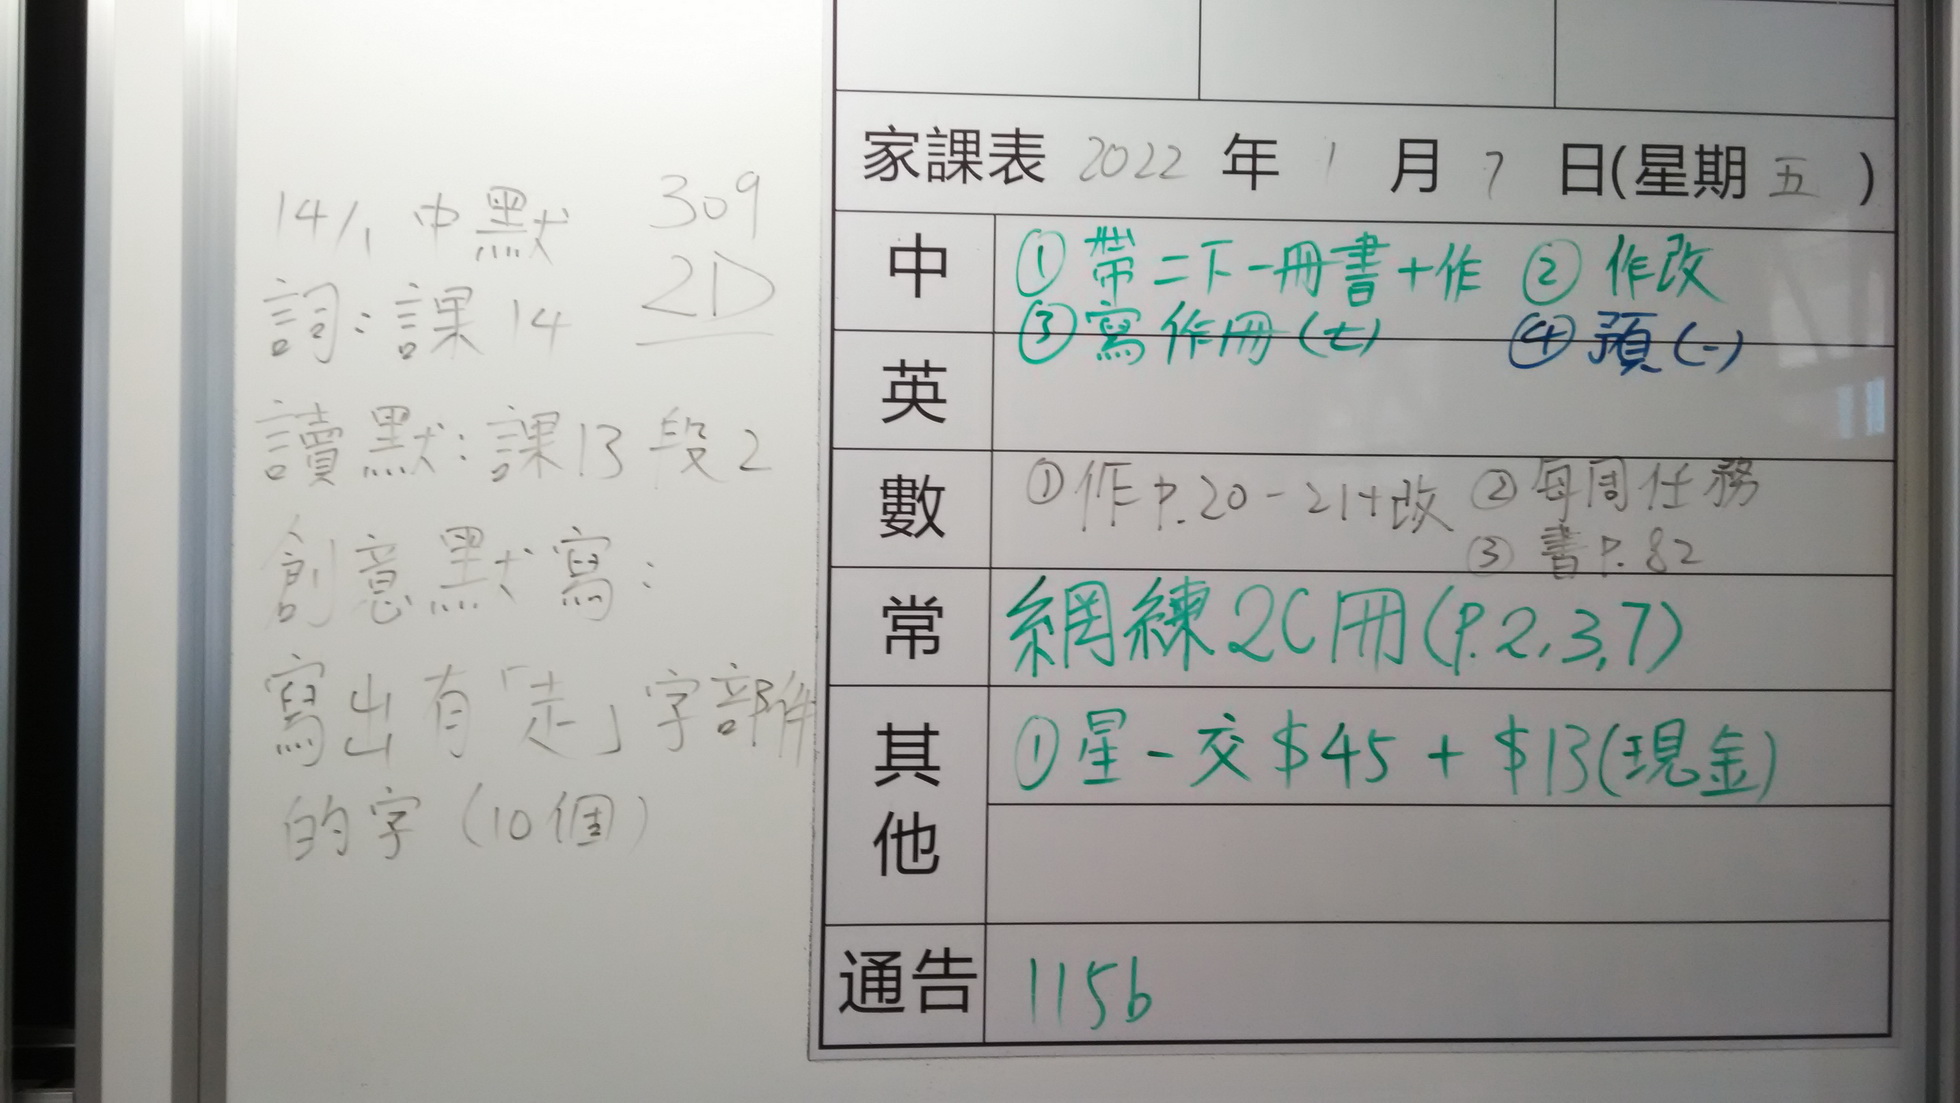 14/1 中默 309
2D
詞：課14
讀默：課13 段2
創意默寫：
寫出有「走」字部件
的字（10個）
家課表 2022 年 1 月 7 日(星期 五 )
中 ① 帶二下一冊書+作 ② 作改
③ 寫作冊(七) ④ 預(一)
英
數 ① 作P.20-21+改 ② 每周任務
③ 書P.82
常 網練2C冊(P.2,3,7)
其他 ① 星一交$45 + $13(現金)
通告 115b